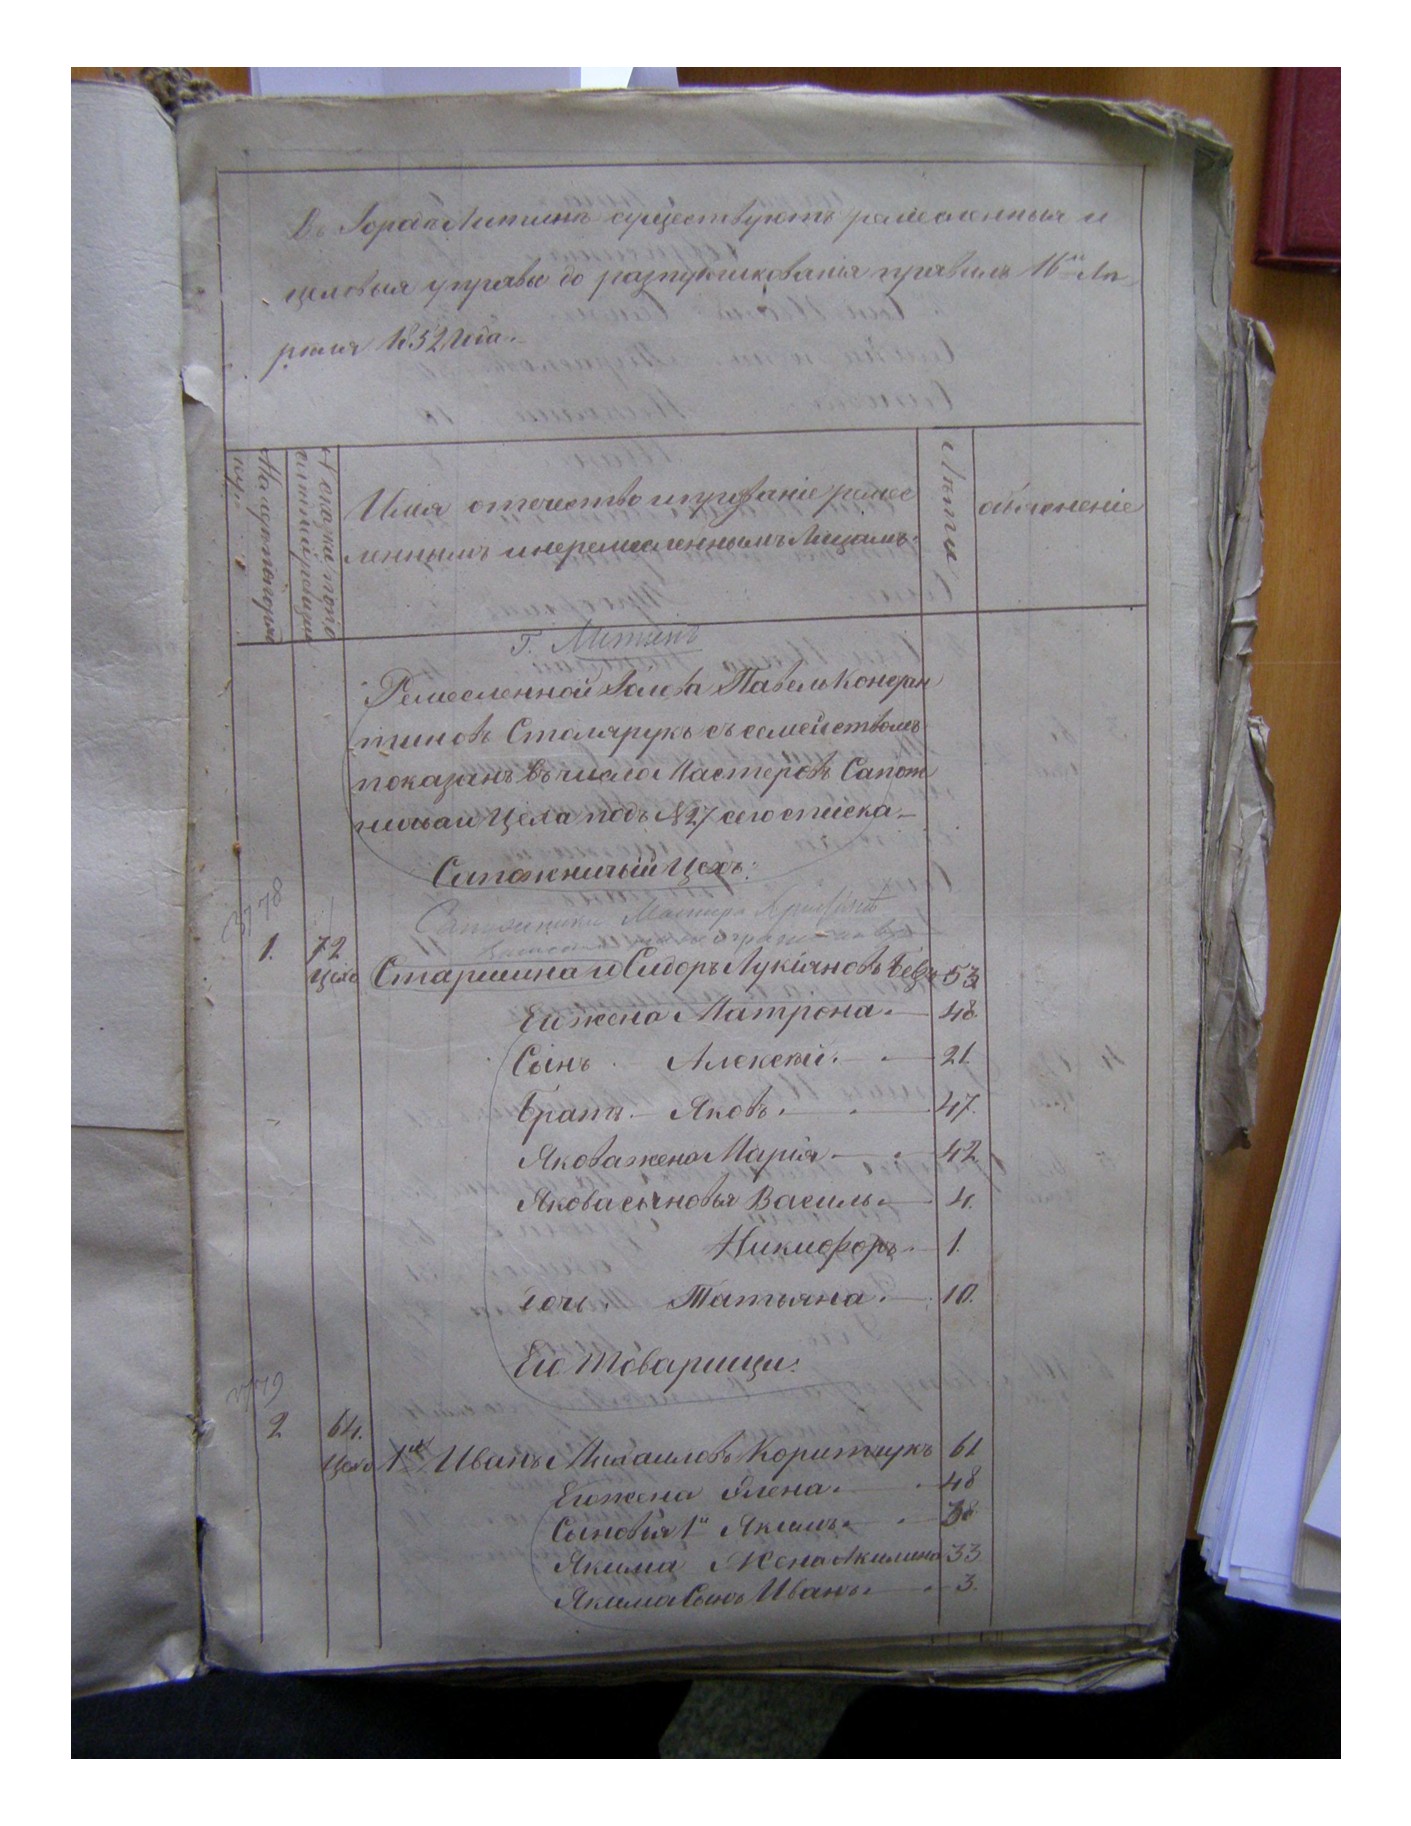 Въ Городѣ Литинѣ существуютъ ремесленныя и
цеховыя управы до разпубликованія правилъ 16го Ап
рѣля 1852 года.
На лицо
Имя отечество и прозваніе ремес
леннымъ и неремесленнымъ Лицамъ.
Лѣта
объясненіе
г. Литинъ
Ремесленной Голова Павелъ Констан
тиновъ Столярукъ съ семействомъ
показанъ въ числѣ Мастеровъ Сапож
ничьаго Цеха подъ №27 сего списка
Сапожничій Цехъ:
3778
1. 72
Цехо Старшина Сидоръ Лукіяновъ 53
Его жена Матрона. 48.
Сынъ Алексѣй. 21.
Братъ. Яковъ. 47.
Якова жена Марія 42
Якова сыновья Василь 4.
Никифоръ. 1.
дочь. Татьяна. 10.
Его Товарищи:
2 64.
Цехо 1й Иванъ Михайловъ Коритчукъ 61
Его жена Елена. 48
Сыновья 1й Якимъ 38
Якима Жена Акилина 33
Якима Сынъ Иванъ. 3.